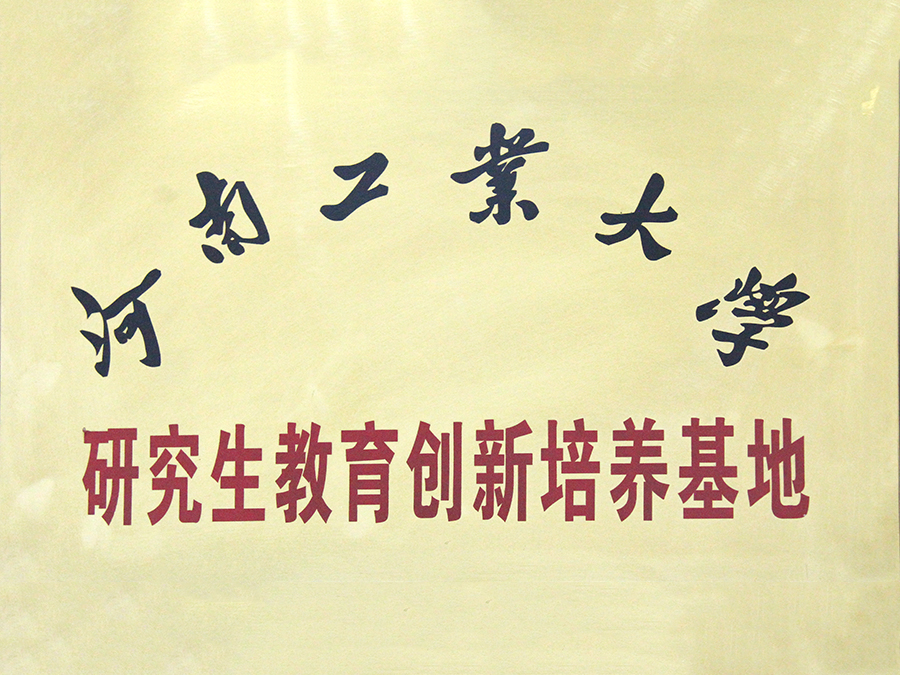 河南工業大學
研究生教育创新培养基地